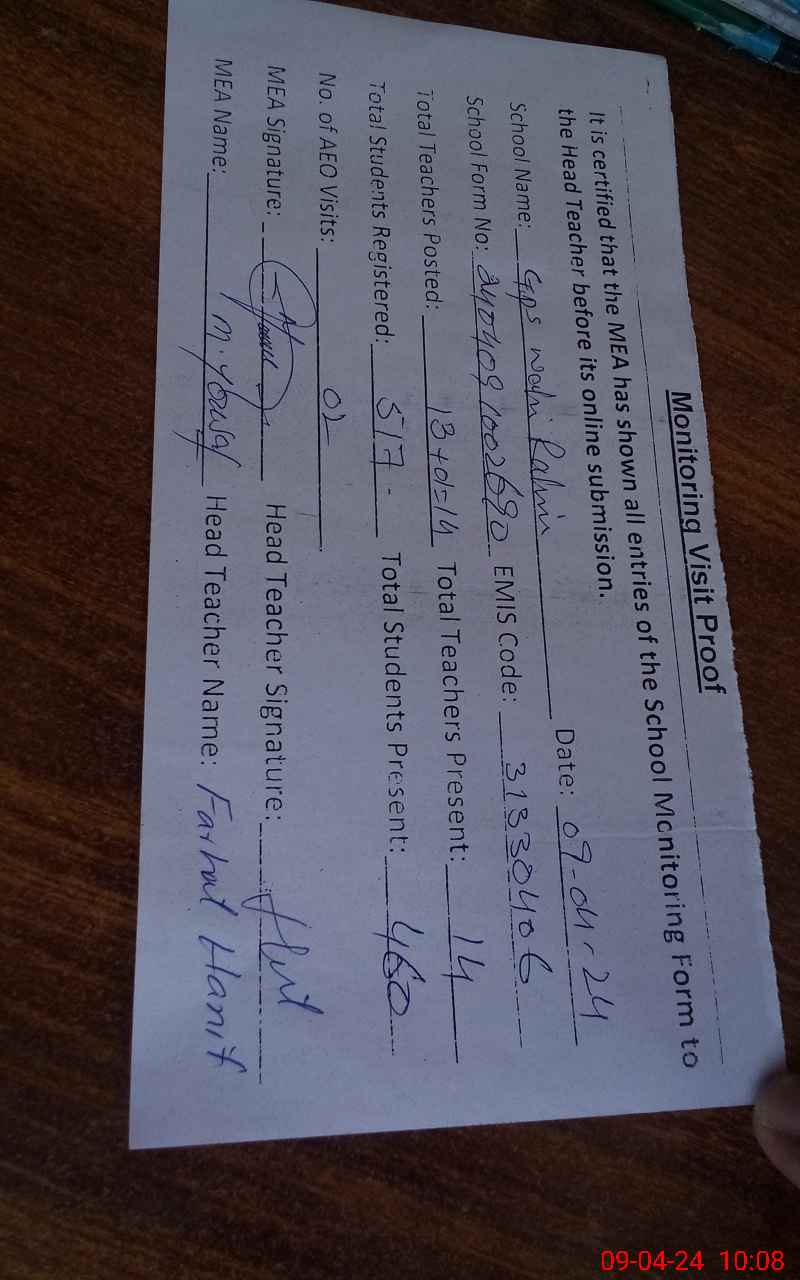 Monitoring Visit Proof
It is certified that the MEA has shown all entries of the School Monitoring Form to
the Head Teacher before its online submission.
School Name: GPS Date: 09-04-24
School Form No: 2404091002690 EMIS Code: 31330406
Total Teachers Posted: 13+01=14 Total Teachers Present: 14
Total Students Registered: 517 - Total Students Present: 460
No. of AEO Visits: 02
MEA Signature: Head Teacher Signature:
MEA Name: M. Yousaf Head Teacher Name: Farhat Hanif
09-04-24 10:08